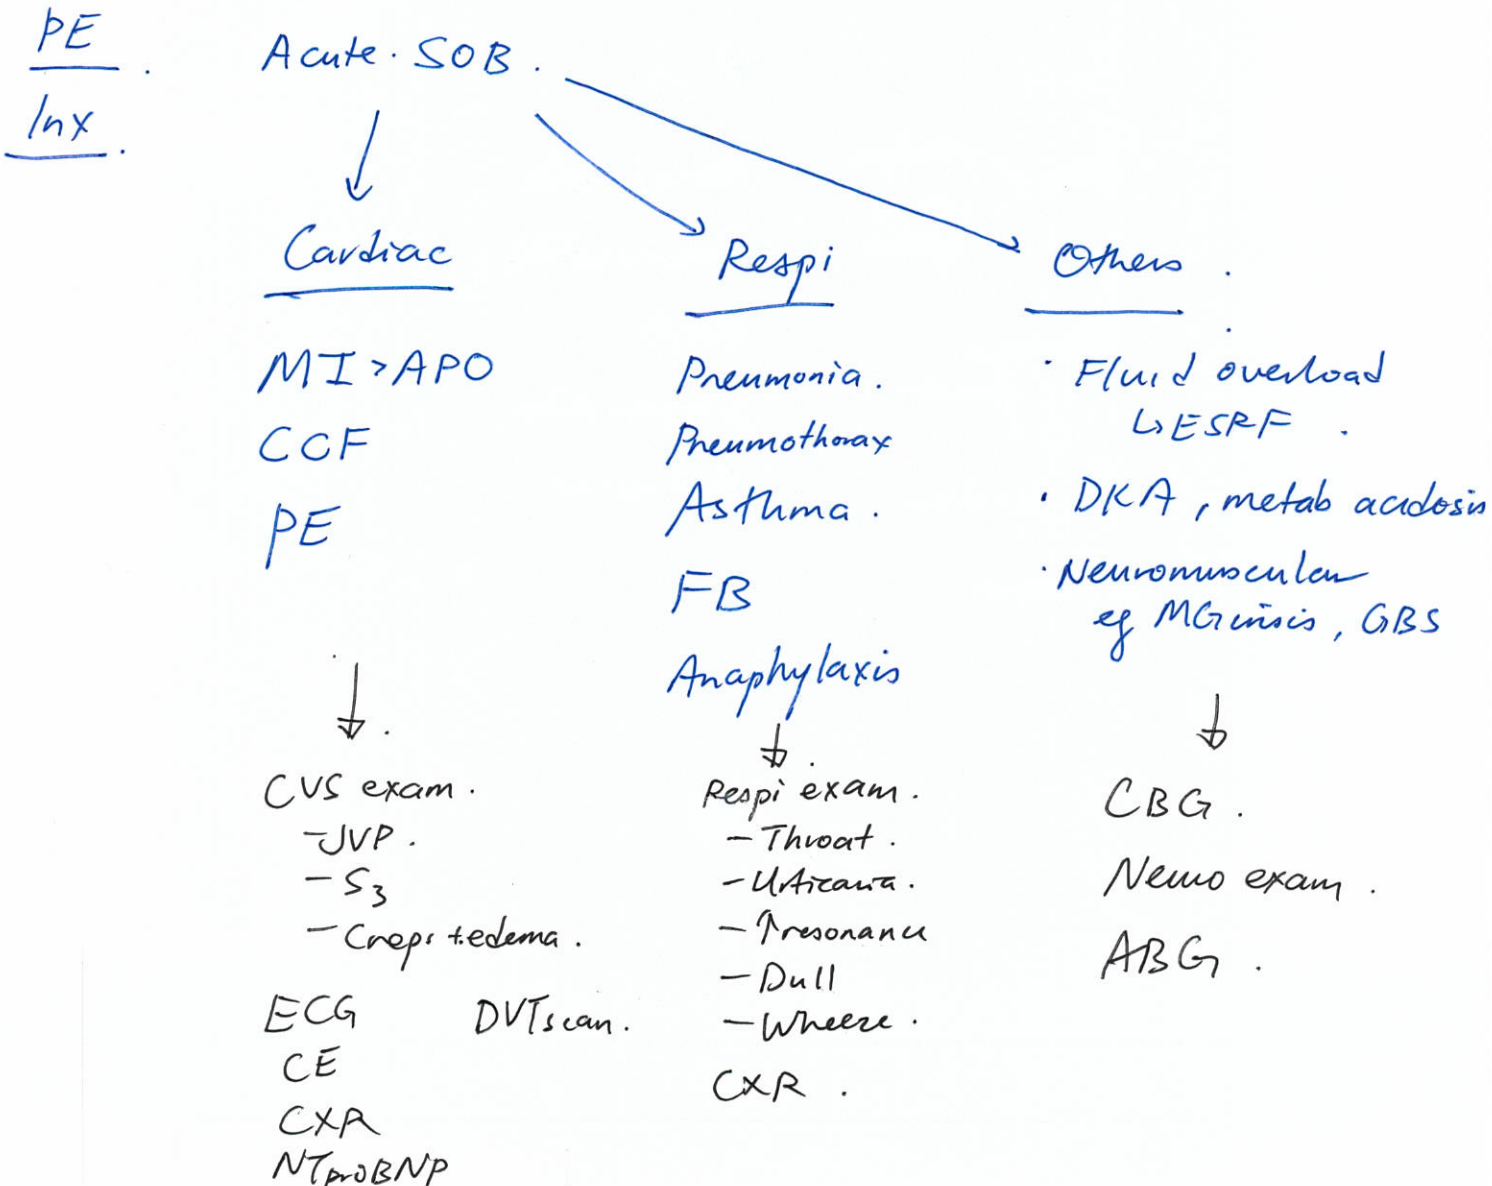 PE.
Acute. SOB.
Inx.
Cardiac
MI > APO
CCF
PE
CVS exam.
- JVP.
- S3
- Creps + edema.
ECG
DVT scan.
CE
CXR
NTproBNP
Respi
Pneumonia.
Pneumothorax
Asthma.
FB
Anaphylaxis
Respi exam.
- Throat.
- Urticaria.
- ↑resonance
- Dull
- Wheeze.
CXR.
Others.
· Fluid overload
↳ ESRF.
· DKA, metab acidosis
· Neuromuscular
eg MG crisis, GBS
CBG.
Neuro exam.
ABG.